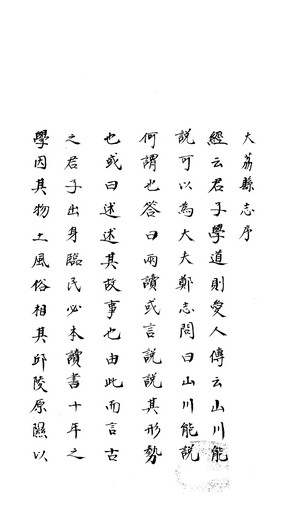 大荔縣志序
經云君子學道則愛人傳云山川能
說可以為大夫鄭志問曰山川能說
何謂也答曰兩讀或言說說其形勢
也或曰述述其故事也由此而言古
之君子出身臨民必本讀書十年之
學因其物土風俗相其邱陵原隰以